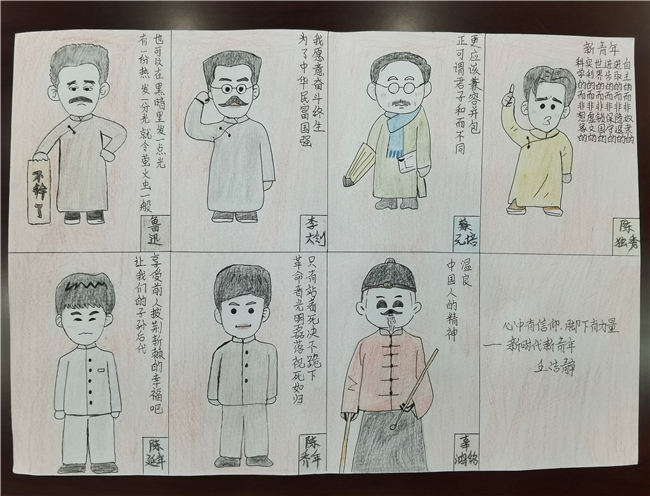 不干了
有一份热 发一分光 就令萤火虫一般
也可以在黑暗里发一点光
鲁迅
为了中华民富国强
我愿意奋斗终生
李大钊
正可谓君子和而不同
更应该兼容并包
蔡元培
新青年
自主的而非奴隶的
进步的而非保守的
进取的而非退隐的
世界的而非锁国的
实利的而非虚文的
科学的而非想象的
陈独秀
让我们的子孙后代
享受前人披荆斩棘的幸福吧
陈延年
革命者光明磊落视死如归
只有站着死决不跪下
陈乔年
温良
中国人的精神
辜鸿铭
心中有信仰.脚下有力量
——新时代新青年
王浩静